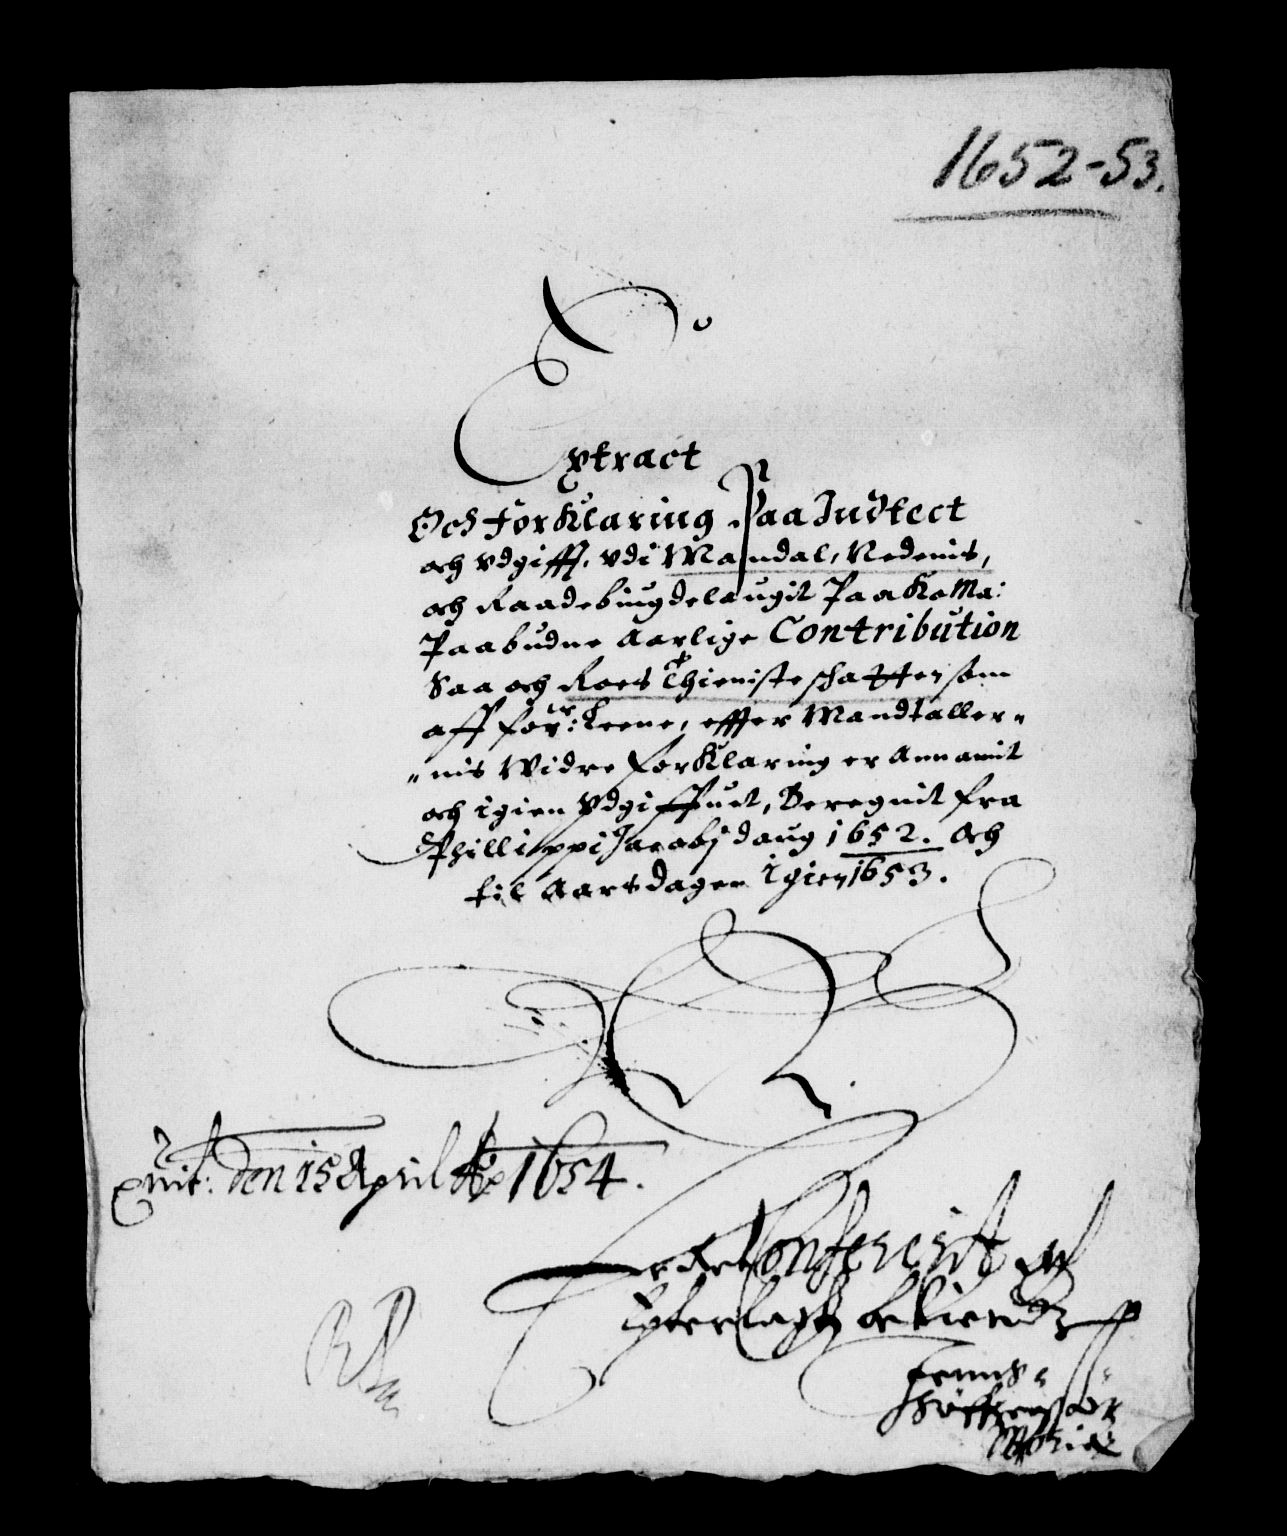 1652-53.
Extract
Och forKlaring Paa Indtect
och vdgifft, vdi Mandal, Nedenis,
och Raadebiugdelaugit Paa Ko Ma:
Paabudne Aarlige Contribution
Saa och Roes Thienisteschatten som
aff forne: Leene, effter Mandtaller-
nis Widre forKlaring er Annamit
och igien Vdgiffuet, Beregnit fra
Phillippi Jacobj daug 1652. Och
til Aarsdagen Igien 1653.
qvit: den 15 April Ao 1654.
offuerlagt